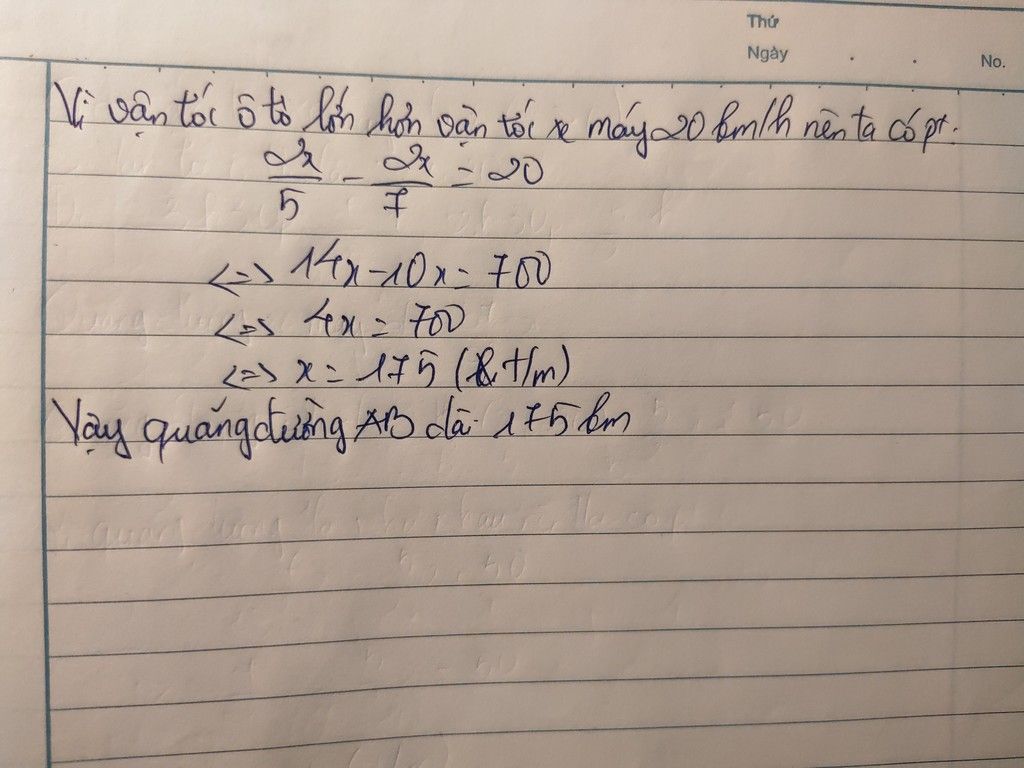 Thứ
Ngày . . No.
Vì vận tốc ô tô lớn hơn vận tốc xe máy 20 km/h nên ta có pt:
2x/5 - 2x/7 = 20
<=> 14x - 10x = 700
<=> 4x = 700
<=> x = 175 (t/m)
Vậy quãng đường AB dài 175 km